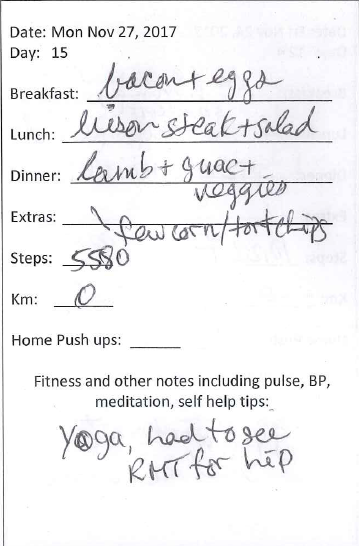 Date: Mon Nov 27, 2017
Day: 15
Breakfast: bacon + eggs
Lunch: bison steak + salad
Dinner: lamb + guac +
veggies
Extras: few corn/tort chips
Steps: 5580
Km: 0
Home Push ups:
Fitness and other notes including pulse, BP,
meditation, self help tips:
Yoga, had to see
RMT for hip